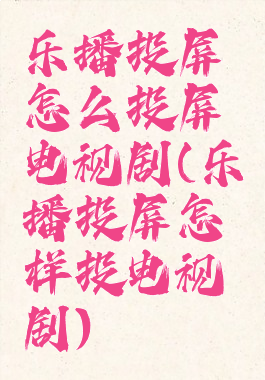 乐播投屏
怎么投屏
电视剧(乐
播投屏怎
样投电视
剧)